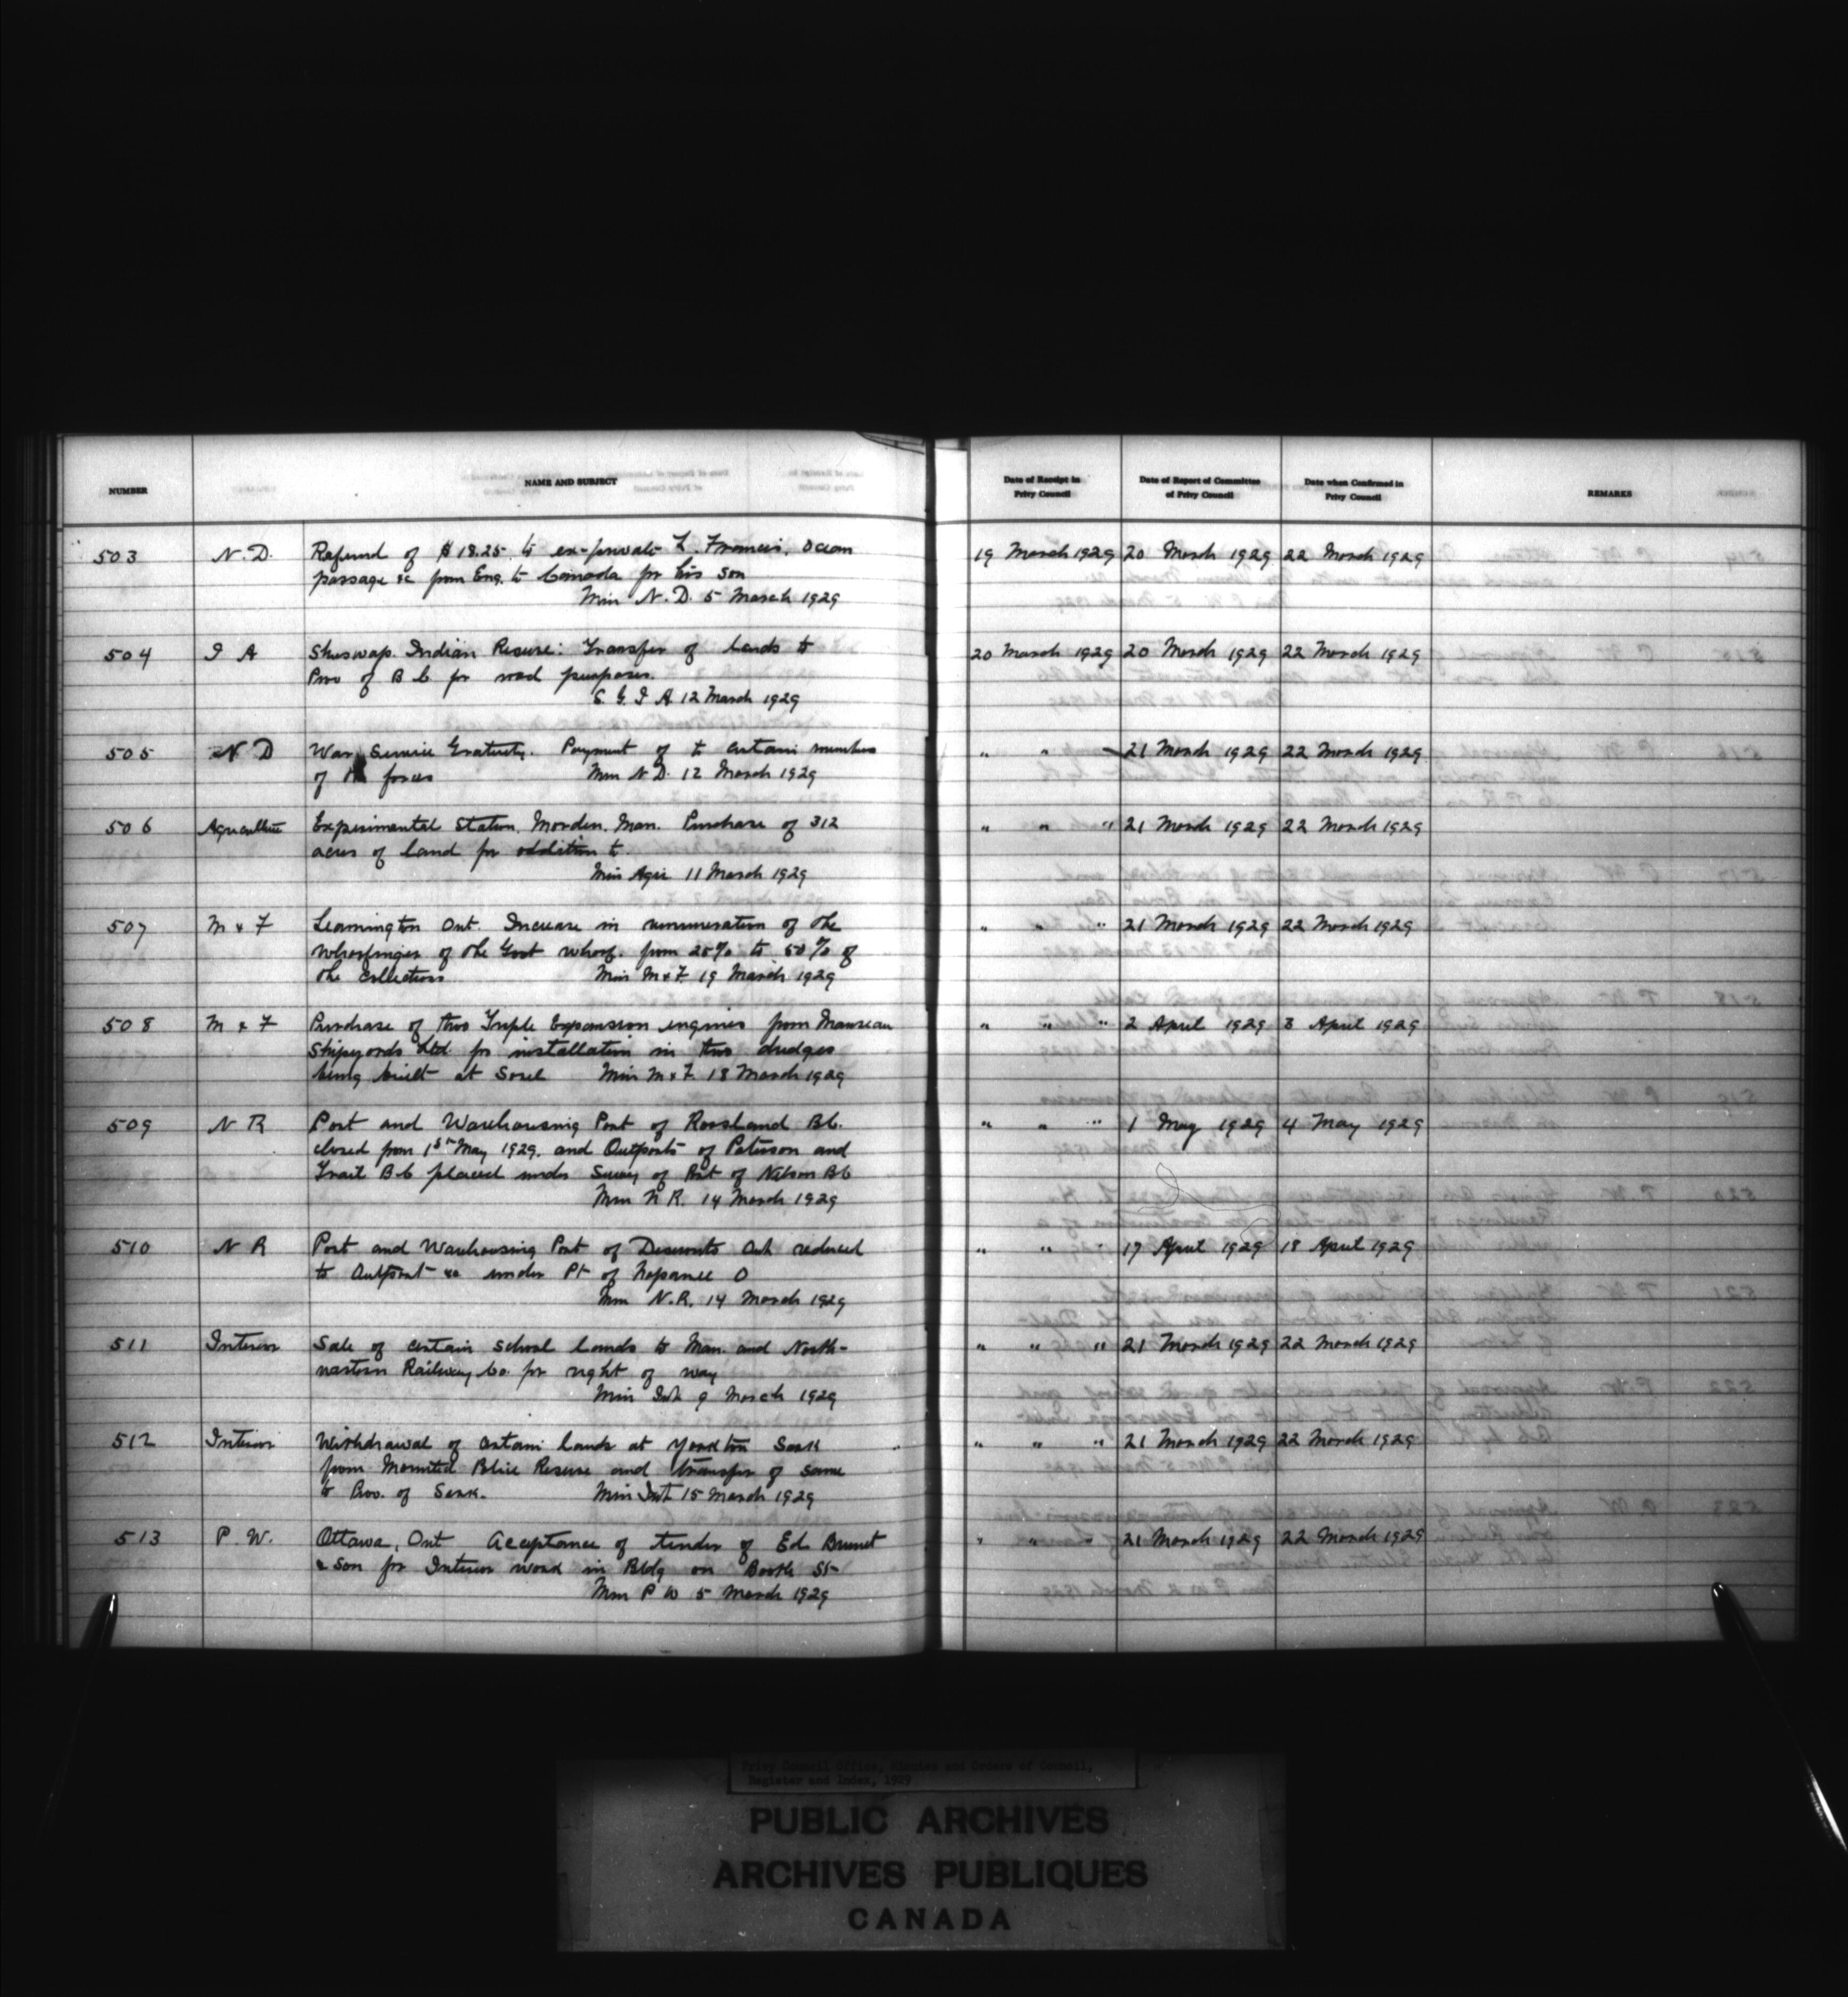 NUMBER
NAME AND SUBJECT
Date of Receipt in Privy Council
Date of Report of Committee of Privy Council
Date when Confirmed in Privy Council
REMARKS
503 N.D. Refund of $18.25 to ex-private L. Francis, Ocean 19 March 1929 20 March 1929 22 March 1929
passage &c from Eng. to Canada for his son
Min N.D. 5 March 1929
504 I A Shuswap Indian Reserve: Transfer of lands to 20 March 1929 20 March 1929 22 March 1929
Prov of B C for road purposes.
S. G. I A. 12 March 1929
505 N D War Service Gratuity. Payment of to certain members " " " 21 March 1929 22 March 1929
of the forces Min N D. 12 March 1929
506 Agriculture Experimental Station, Morden, Man. Purchase of 312 " " " 21 March 1929 22 March 1929
acres of land for addition to
Min Agri 11 March 1929
507 M & F Leamington Ont. Increase in remuneration of the " " " 21 March 1929 22 March 1929
Wharfinger of the Govt wharf. from 25% to 50% of
the collections Min M & F 19 March 1929
508 M & F Purchase of two Triple Expansion engines from Manseau " " " 2 April 1929 3 April 1929
Shipyards Ltd. for installation in two dredges
being built at Sorel Min M & F. 18 March 1929
509 N R Port and Warehousing Port of Rossland B.C. " " " 1 May 1929 4 May 1929
closed from 1st May 1929. and Outports of Paterson and
Trail B.C placed under Survey of Port of Nelson B C
Min N R. 14 March 1929
510 N R Port and Warehousing Port of Deseronto Ont reduced " " " 17 April 1929 18 April 1929
to Outport &c under Pt of Napanee O
Min N.R. 14 March 1929
511 Interior Sale of certain School Lands to Man. and North- " " " 21 March 1929 22 March 1929
western Railway Co. for right of way
Min Int. 9 March 1929
512 Interior Withdrawal of certain lands at Yorkton Sask " " " 21 March 1929 22 March 1929
from Mounted Police Reserve and transfer of same
to Prov. of Sask. Min Int 15 March 1929
513 P. W. Ottawa, Ont Acceptance of tender of Ed. Brunet " " " 21 March 1929 22 March 1929
& Son for Interior work in Bldg on Booth St
Min P W 5 March 1929
Privy Council Office, Minutes and Orders of Council,
Register and Index, 1929
PUBLIC ARCHIVES
ARCHIVES PUBLIQUES
CANADA